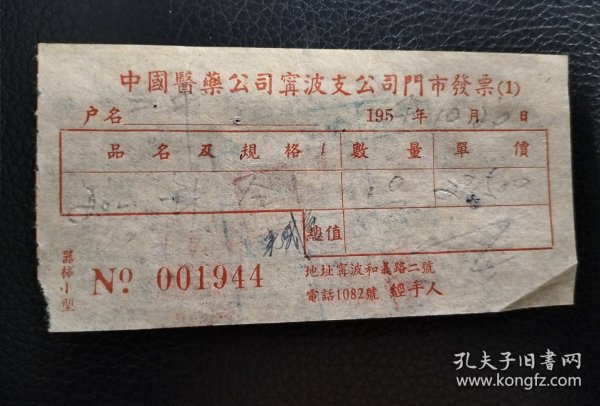 中國醫藥公司甯波支公司門市發票(1)
户名
195 年10月20日
品名及規格 數量 單價
總值
器棉小型
№ 001944
地址甯波和義路二號
電話1082號 經手人
孔夫子旧书网
www.kongfz.com